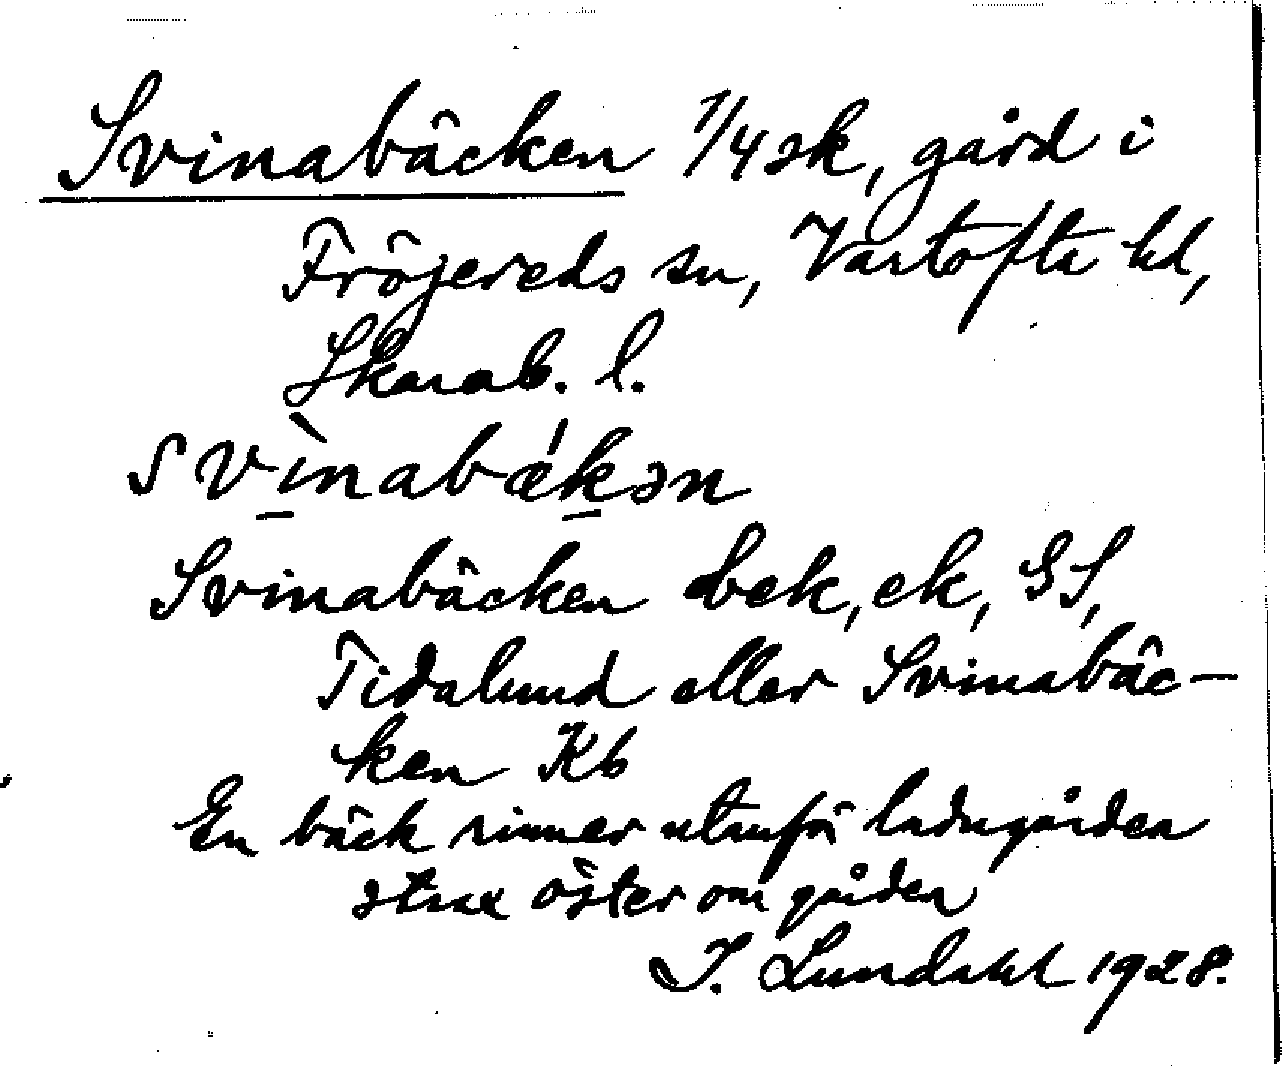 Svinabäcken 1/4 sk, gård i
Fröjereds sn, Vartofta hd,
Skarab. l.
svìnabǽkən
Svinabäcken dbek, ek, GS,
Tidalund eller Svinabäc-
ken Kb
En bäck rinner utanför ladugården
strax öster om gården
I. Lundahl 1928.